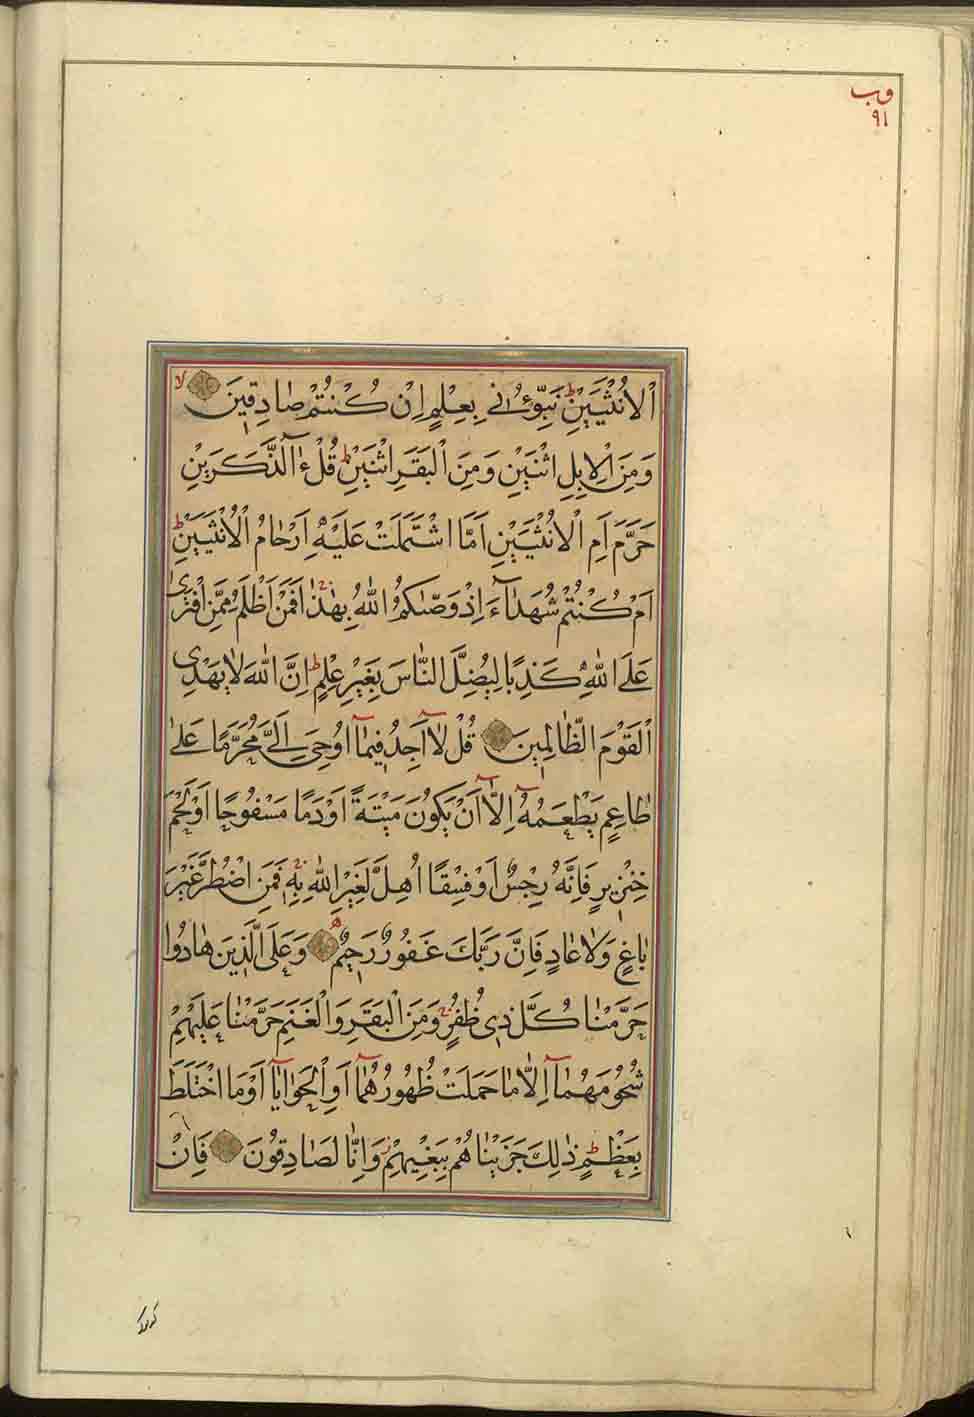 وب
٩١
اْلاُنْثَيَيْنِ ط نَبِّؤُ۫نٖي بِعِلْمٍ اِنْ كُنْتُمْ صٰادِقٖينَ لا
وَمِنَ اْلاِبِلِ اثْنَيْنِ وَمِنَ الْبَقَرِ اثْنَيْنِ ط قُلْ ءٰۤالذَّكَرَيْنِ
حَرَّمَ اَمِ اْلاُنْثَيَيْنِ اَمَّا اشْتَمَلَتْ عَلَيْهِ اَرْحٰامُ اْلاُنْثَيَيْنِ ط
اَمْ كُنْتُمْ شُهَدٰۤاءَ اِذْ وَصّٰىكُمُ اللّٰهُ بِهٰذٰا ج فَمَنْ اَظْلَمُ مِمَّنِ افْتَرٰى
عَلَى اللّٰهِ كَذِبًا لِيُضِلَّ النّٰاسَ بِغَيْرِ عِلْمٍ ط اِنَّ اللّٰهَ لاٰ يَهْدِى
الْقَوْمَ الظّٰالِمٖينَ قُلْ لاٰۤ اَجِدُ فٖيمٰۤا اُوحِىَ اِلَىَّ مُحَرَّمًا عَلىٰ
طٰاعِمٍ يَطْعَمُهُۤ اِلاّٰۤ اَنْ يَكُونَ مَيْتَةً اَوْ دَمًا مَسْفُوحًا اَوْ لَحْمَ
خِنْزٖيرٍ فَاِنَّهُ رِجْسٌ اَوْ فِسْقًا اُهِلَّ لِغَيْرِ اللّٰهِ بِهٖ ج فَمَنِ اضْطُرَّ غَيْرَ
بٰاغٍ وَلاٰ عٰادٍ فَاِنَّ رَبَّكَ غَفُورٌ رَحٖيمٌ ه وَعَلَى الَّذٖينَ هٰادُوا
حَرَّمْنٰا كُلَّ ذٖى ظُفُرٍ ج وَمِنَ الْبَقَرِ وَالْغَنَمِ حَرَّمْنٰا عَلَيْهِمْ
شُحُومَهُمٰۤا اِلاّٰ مٰا حَمَلَتْ ظُهُورُهُمٰۤا اَوِ الْحَوٰايٰۤا اَوْ مَا اخْتَلَطَ
بِعَظْمٍ ط ذٰلِكَ جَزَيْنٰاهُمْ بِبَغْيِهِمْ ز وَاِنّٰا لَصٰادِقُونَ فَاِنْ